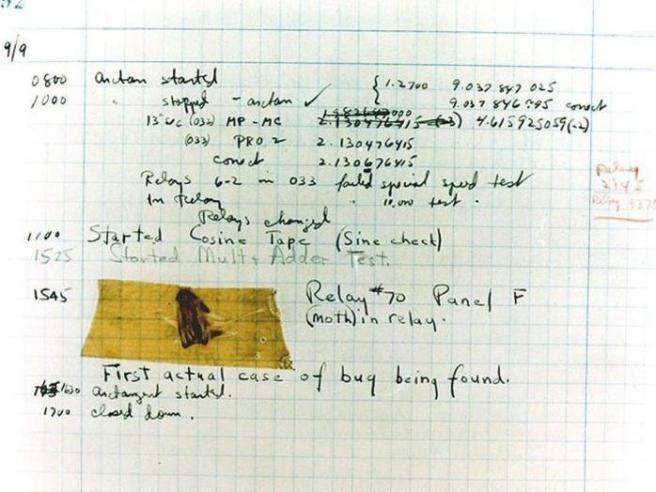 92
9/9
0800 arctan started { 1.2700 9.037 847 025
1000 " stopped - arctan ✓ 9.037 846 995 correct
13"uc (032) MP - MC 2.130476415 4.615925059(-2)
(033) PRO 2 2.130476415
correct 2.130676415
Relays 6-2 in 033 failed special speed test
In Relay " 10,000 test .
Relay 3370
Relays changed
1100 Started Cosine Tape (Sine check)
1525 Started Mult + Adder Test.
1545 Relay #70 Panel F
(moth) in relay.
First actual case of bug being found.
1630 arctangent started.
1700 closed down .